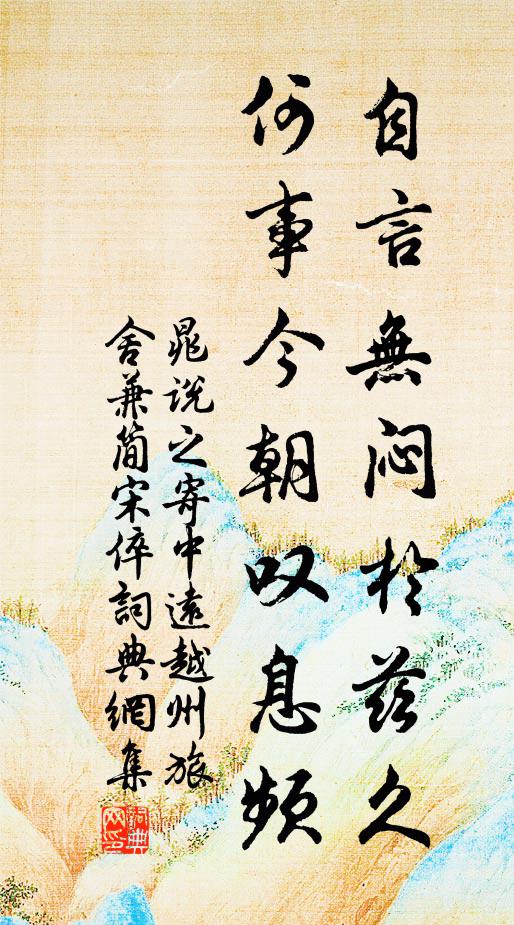 自言無悶於茲久
何事今朝叹息頻
晁說之寄中遠越州旅
舍兼简宋倅詞典網集
詞典
网印